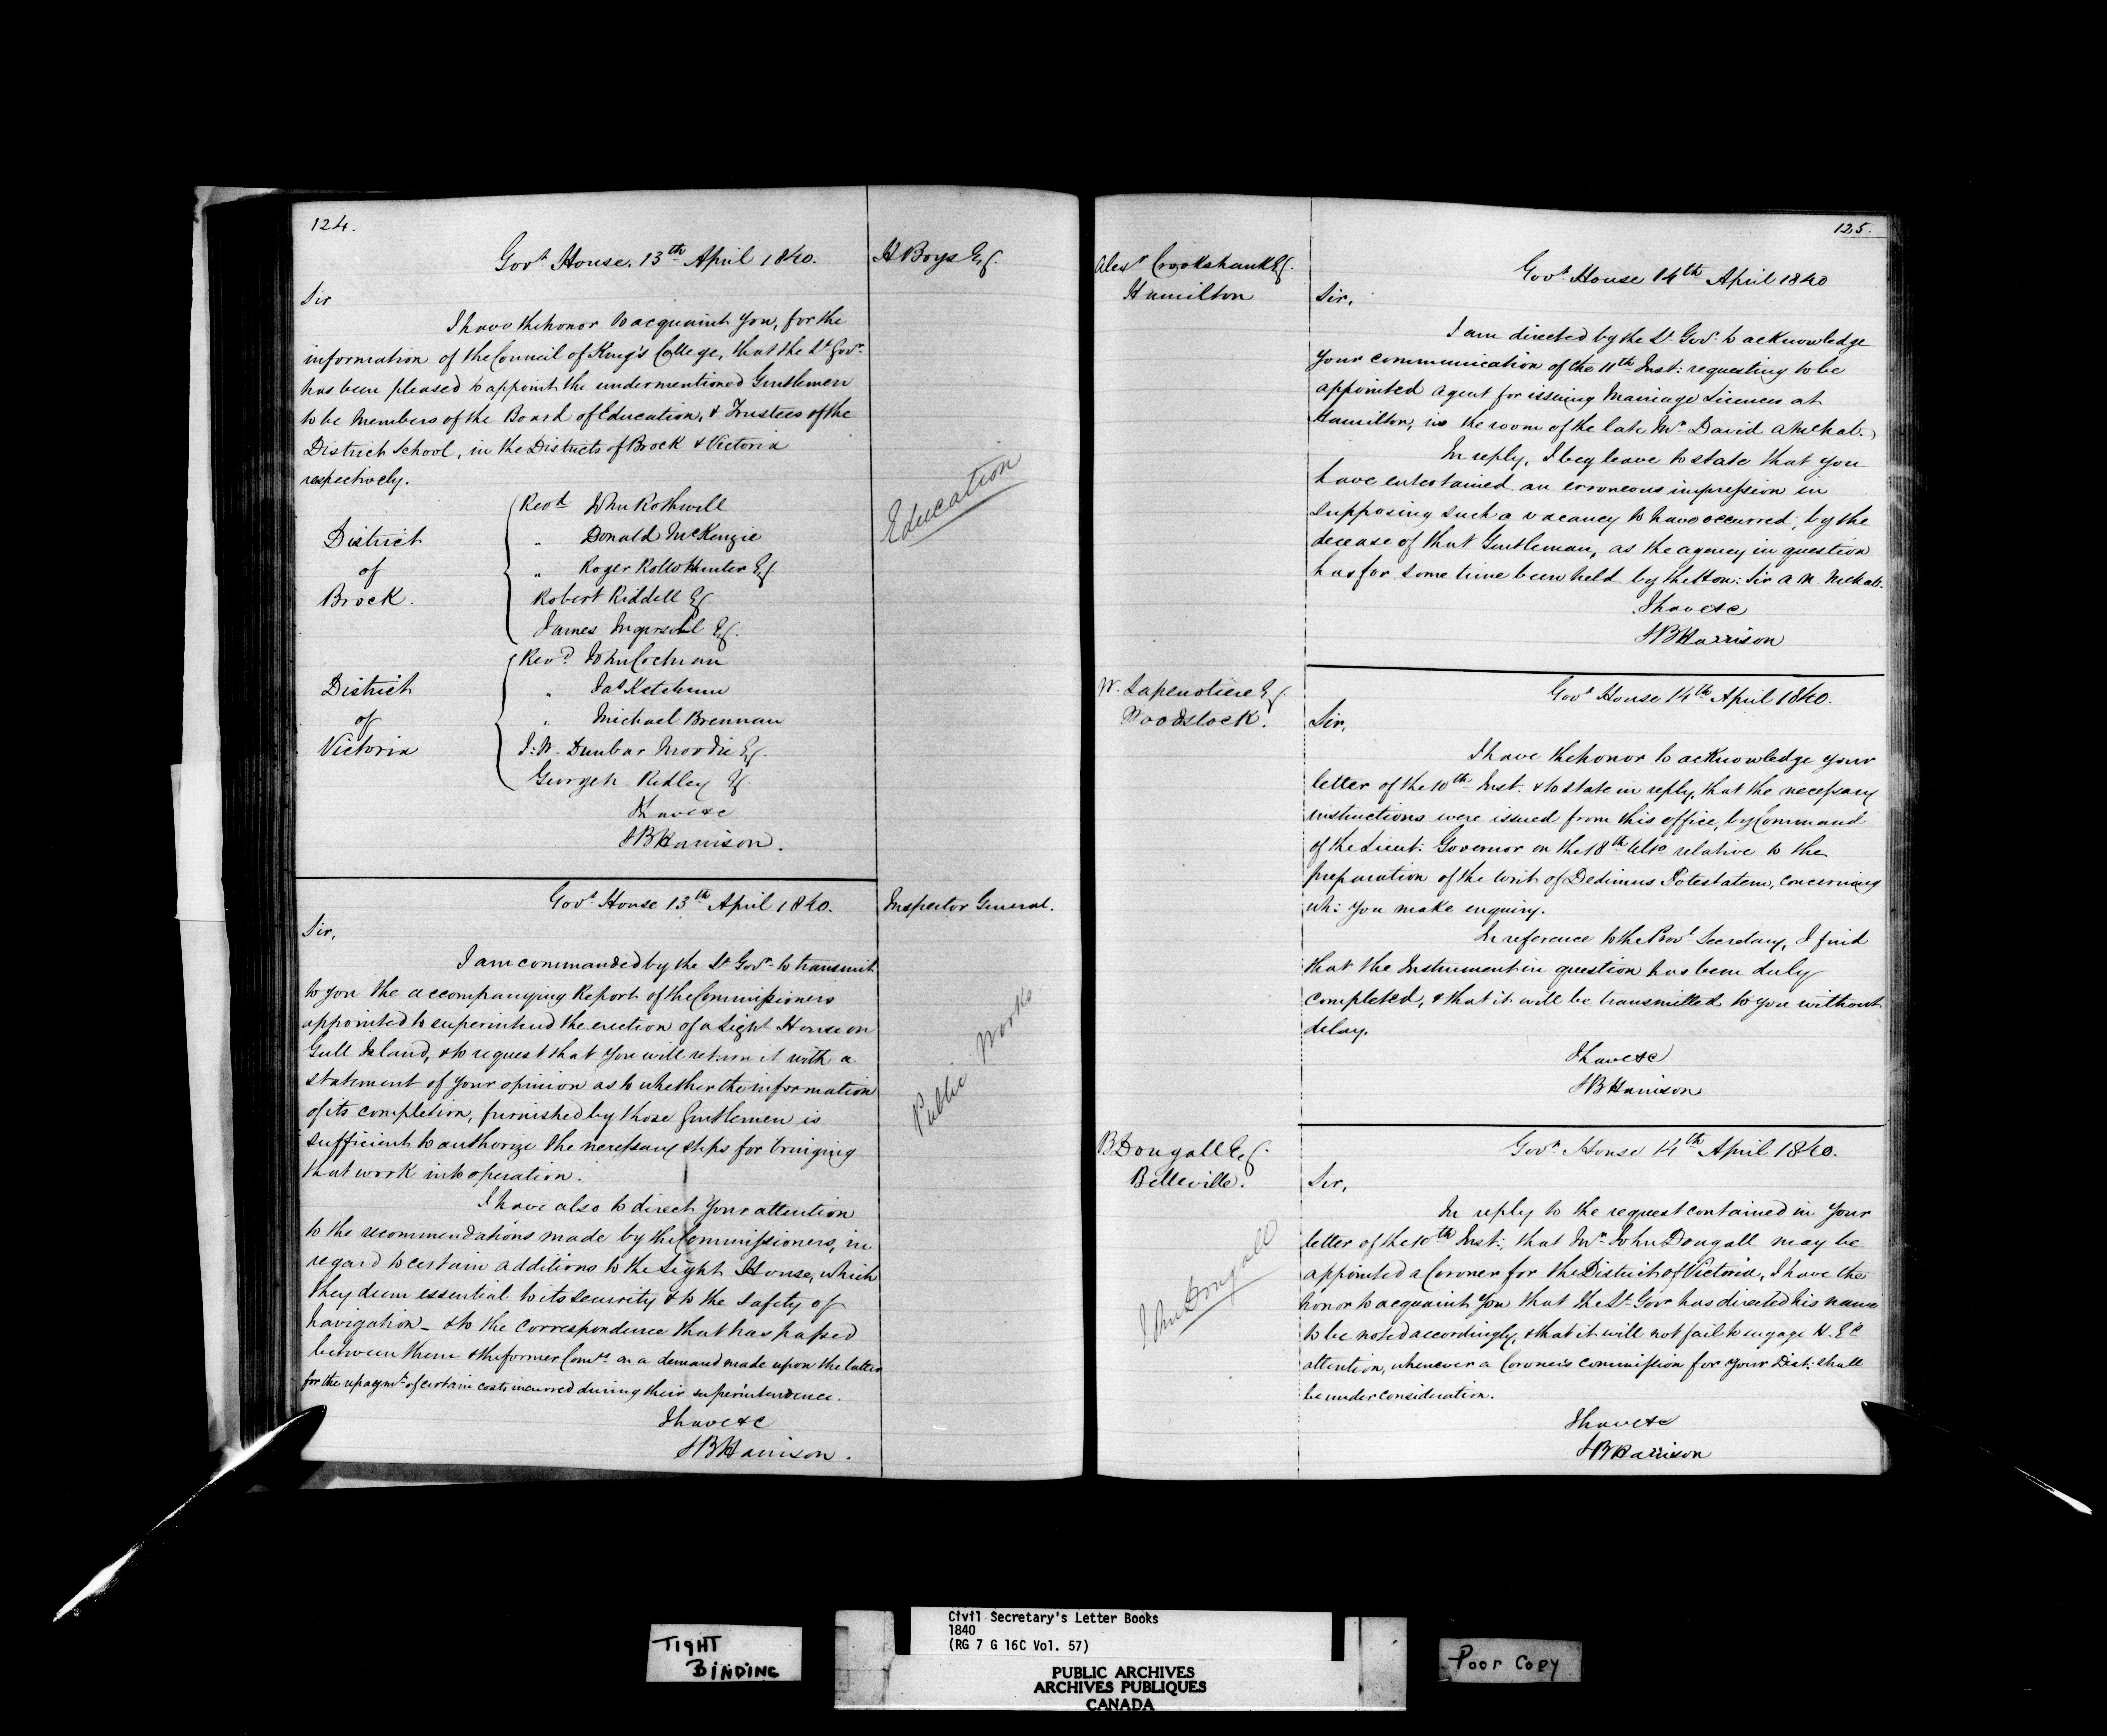 124.
Govt House. 13th April 1840.
H Boys Esq.
Sir
I have the honor to acquaint You, for the
information of the Council of King's College, that the Lt Govr
has been pleased to appoint the undermentioned Gentlemen
to be Members of the Board of Education, & Trustees of the
District School, in the Districts of Brock & Victoria
respectively.
Education
District
of
Brock.
Revd John Rothwell
" Donald McKenzie
" Roger Rollo Hunter Esq.
Robert Riddell Esq
James Ingersoll Esq.
District
of
Victoria
Revd John Cochran
" Jas Ketchum
" Michael Brennan
J. W. Dunbar Moodie Esq.
George Ridley Esq.
I have &c
SBHarrison.
Govt House 13th April 1840.
Inspector General.
Sir,
I am commanded by the Lt Govr to transmit
to you the accompanying Report of the Commissioners
appointed to superintend the erection of a Light House on
Gull Island, & to request that You will return it with a
statement of Your opinion as to whether the information
of its completion, furnished by those Gentlemen is
sufficient to authorize the necessary steps for bringing
that work into operation.
Public Works
I have also to direct Your attention
to the recommendations made by the Commissioners, in
regard to certain additions to the Light House, which
they deem essential to its security & to the safety of
navigation_ & to the correspondence that has passed
between them & the former Comrs on a demand made upon the latter
for the repaymt of certain costs incurred during their superintendence.
I have &c
SBHarrison.
125.
Alexr Crookshank Esq.
Hamilton
Govt House 14th April 1840
Sir,
I am directed by the Lt Govr to acknowledge
Your communication of the 11th Inst: requesting to be
appointed agent for issuing Marriage Licences at
Hamilton, in the room of the late Mr David
In reply, I beg leave to state that you
have entertained an erroneous impression in
supposing such a vacancy to have occurred, by the
decease of that Gentleman, as the agency in question
has for some time been held by the Hon: Sir A N. McNab.
I have &c
SBHarrison
W. Lapenotiere Esq
Woodstock.
Govt House 14th April 1840.
Sir,
I have the honor to acknowledge Your
letter of the 10th Inst. & to state in reply, that the necessary
instructions were issued from this office, by Command
of the Lieut: Governor on the 18th Ulto relative to the
preparation of the Writ of Dedimus Potestatem, concerning
wh: You make enquiry.
In reference to the Provl Secretary, I find
that the Instrument in question has been duly
completed, & that it will be transmitted to you without
delay.
I have &c
SBHarrison
B. Dougall Esq.
Belleville.
Govt House 14th April 1840.
Sir,
In reply to the request contained in Your
letter of the 10th Inst:, that Mr John Dougall may be
appointed a Coroner for the District of Victoria, I have the
honor to acquaint You that the Lt Govr has directed his name
to be noted accordingly, & that it will not fail to engage H. E's
attention, whenever a Coroner's commission for Your Dist: shall
be under consideration.
John Dougall
I have &c
SBHarrison
TIGHT
BINDING
Civil Secretary's Letter Books
1840
(RG 7 G 16C Vol. 57)
PUBLIC ARCHIVES
ARCHIVES PUBLIQUES
CANADA
Poor Copy